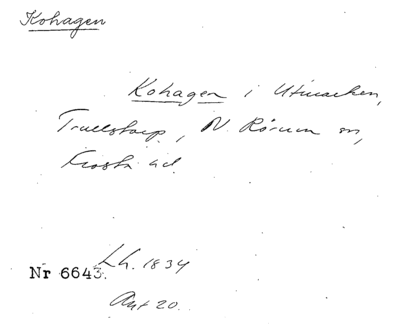 Kohagen
Kohagen i Utmarken,
Trullstorp, N. Rörum sn,
Frosta hd.
Lh. 1834
Nr 6643.
Akt 20.